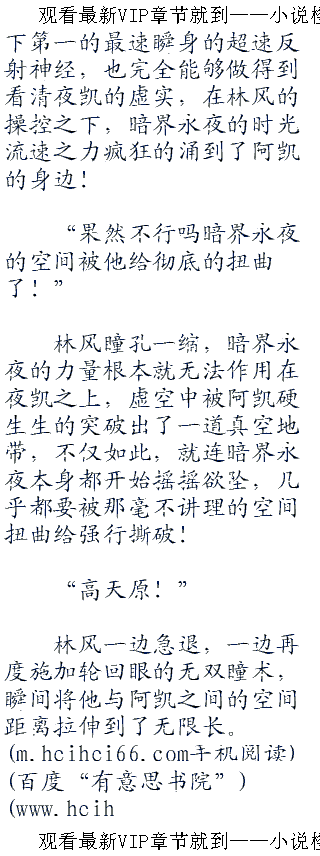 观看最新VIP章节就到——小说检
下第一的最速瞬身的超速反
射神经，也完全能够做得到
看清夜凯的虚实，在林风的
操控之下，暗界永夜的时光
流速之力疯狂的涌到了阿凯
的身边！
“果然不行吗暗界永夜
的空间被他给彻底的扭曲
了！”
林风瞳孔一缩，暗界永
夜的力量根本就无法作用在
夜凯之上，虚空中被阿凯硬
生生的突破出了一道真空地
带，不仅如此，就连暗界永
夜本身都开始摇摇欲坠，几
乎都要被那毫不讲理的空间
扭曲给强行撕破！
“高天原！”
林风一边急退，一边再
度施加轮回眼的无双瞳术，
瞬间将他与阿凯之间的空间
距离拉伸到了无限长。
(m.hcihci66.com手机阅读)
(百度“有意思书院”)
(www.hcih
观看最新VIP章节就到——小说检